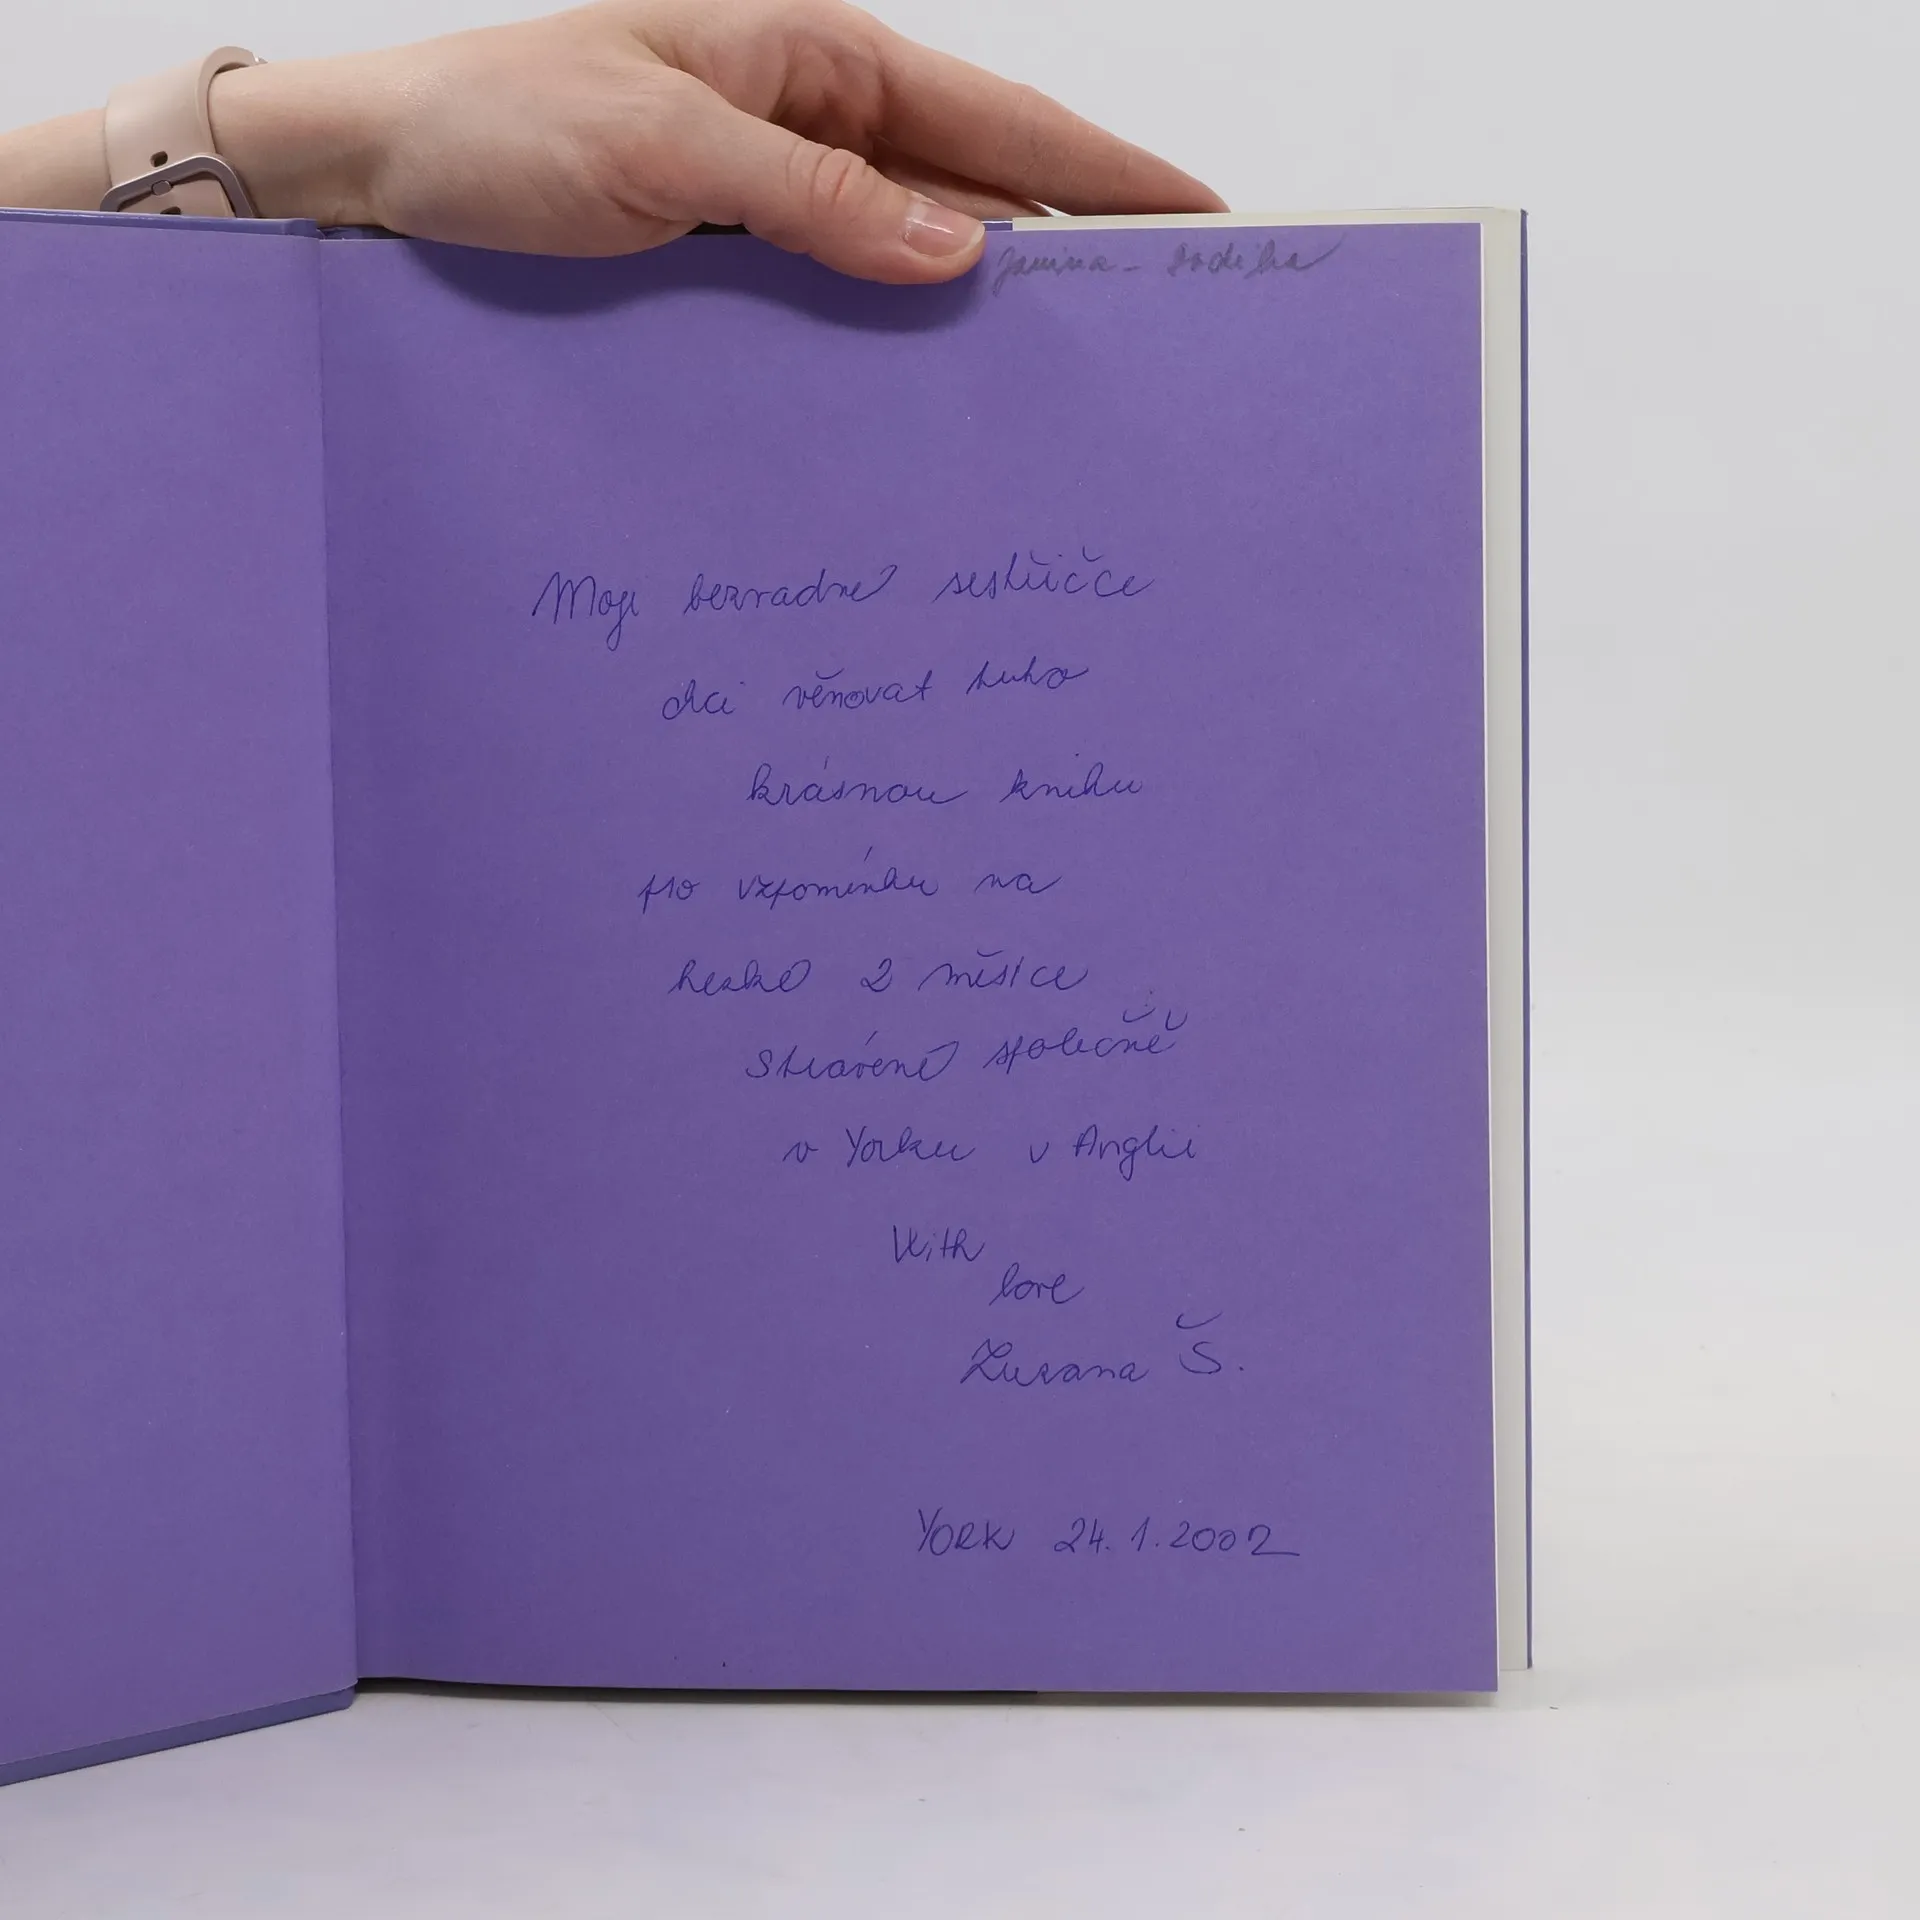 Janina -
Moji bezradné sestřičce
chci věnovat tuto
krásnou knihu
pro vzpomínku na
hezké 2 měsíce
strávené společně
v Yorku v Anglii
With
love
Zuzana Š.
York 24.1.2002